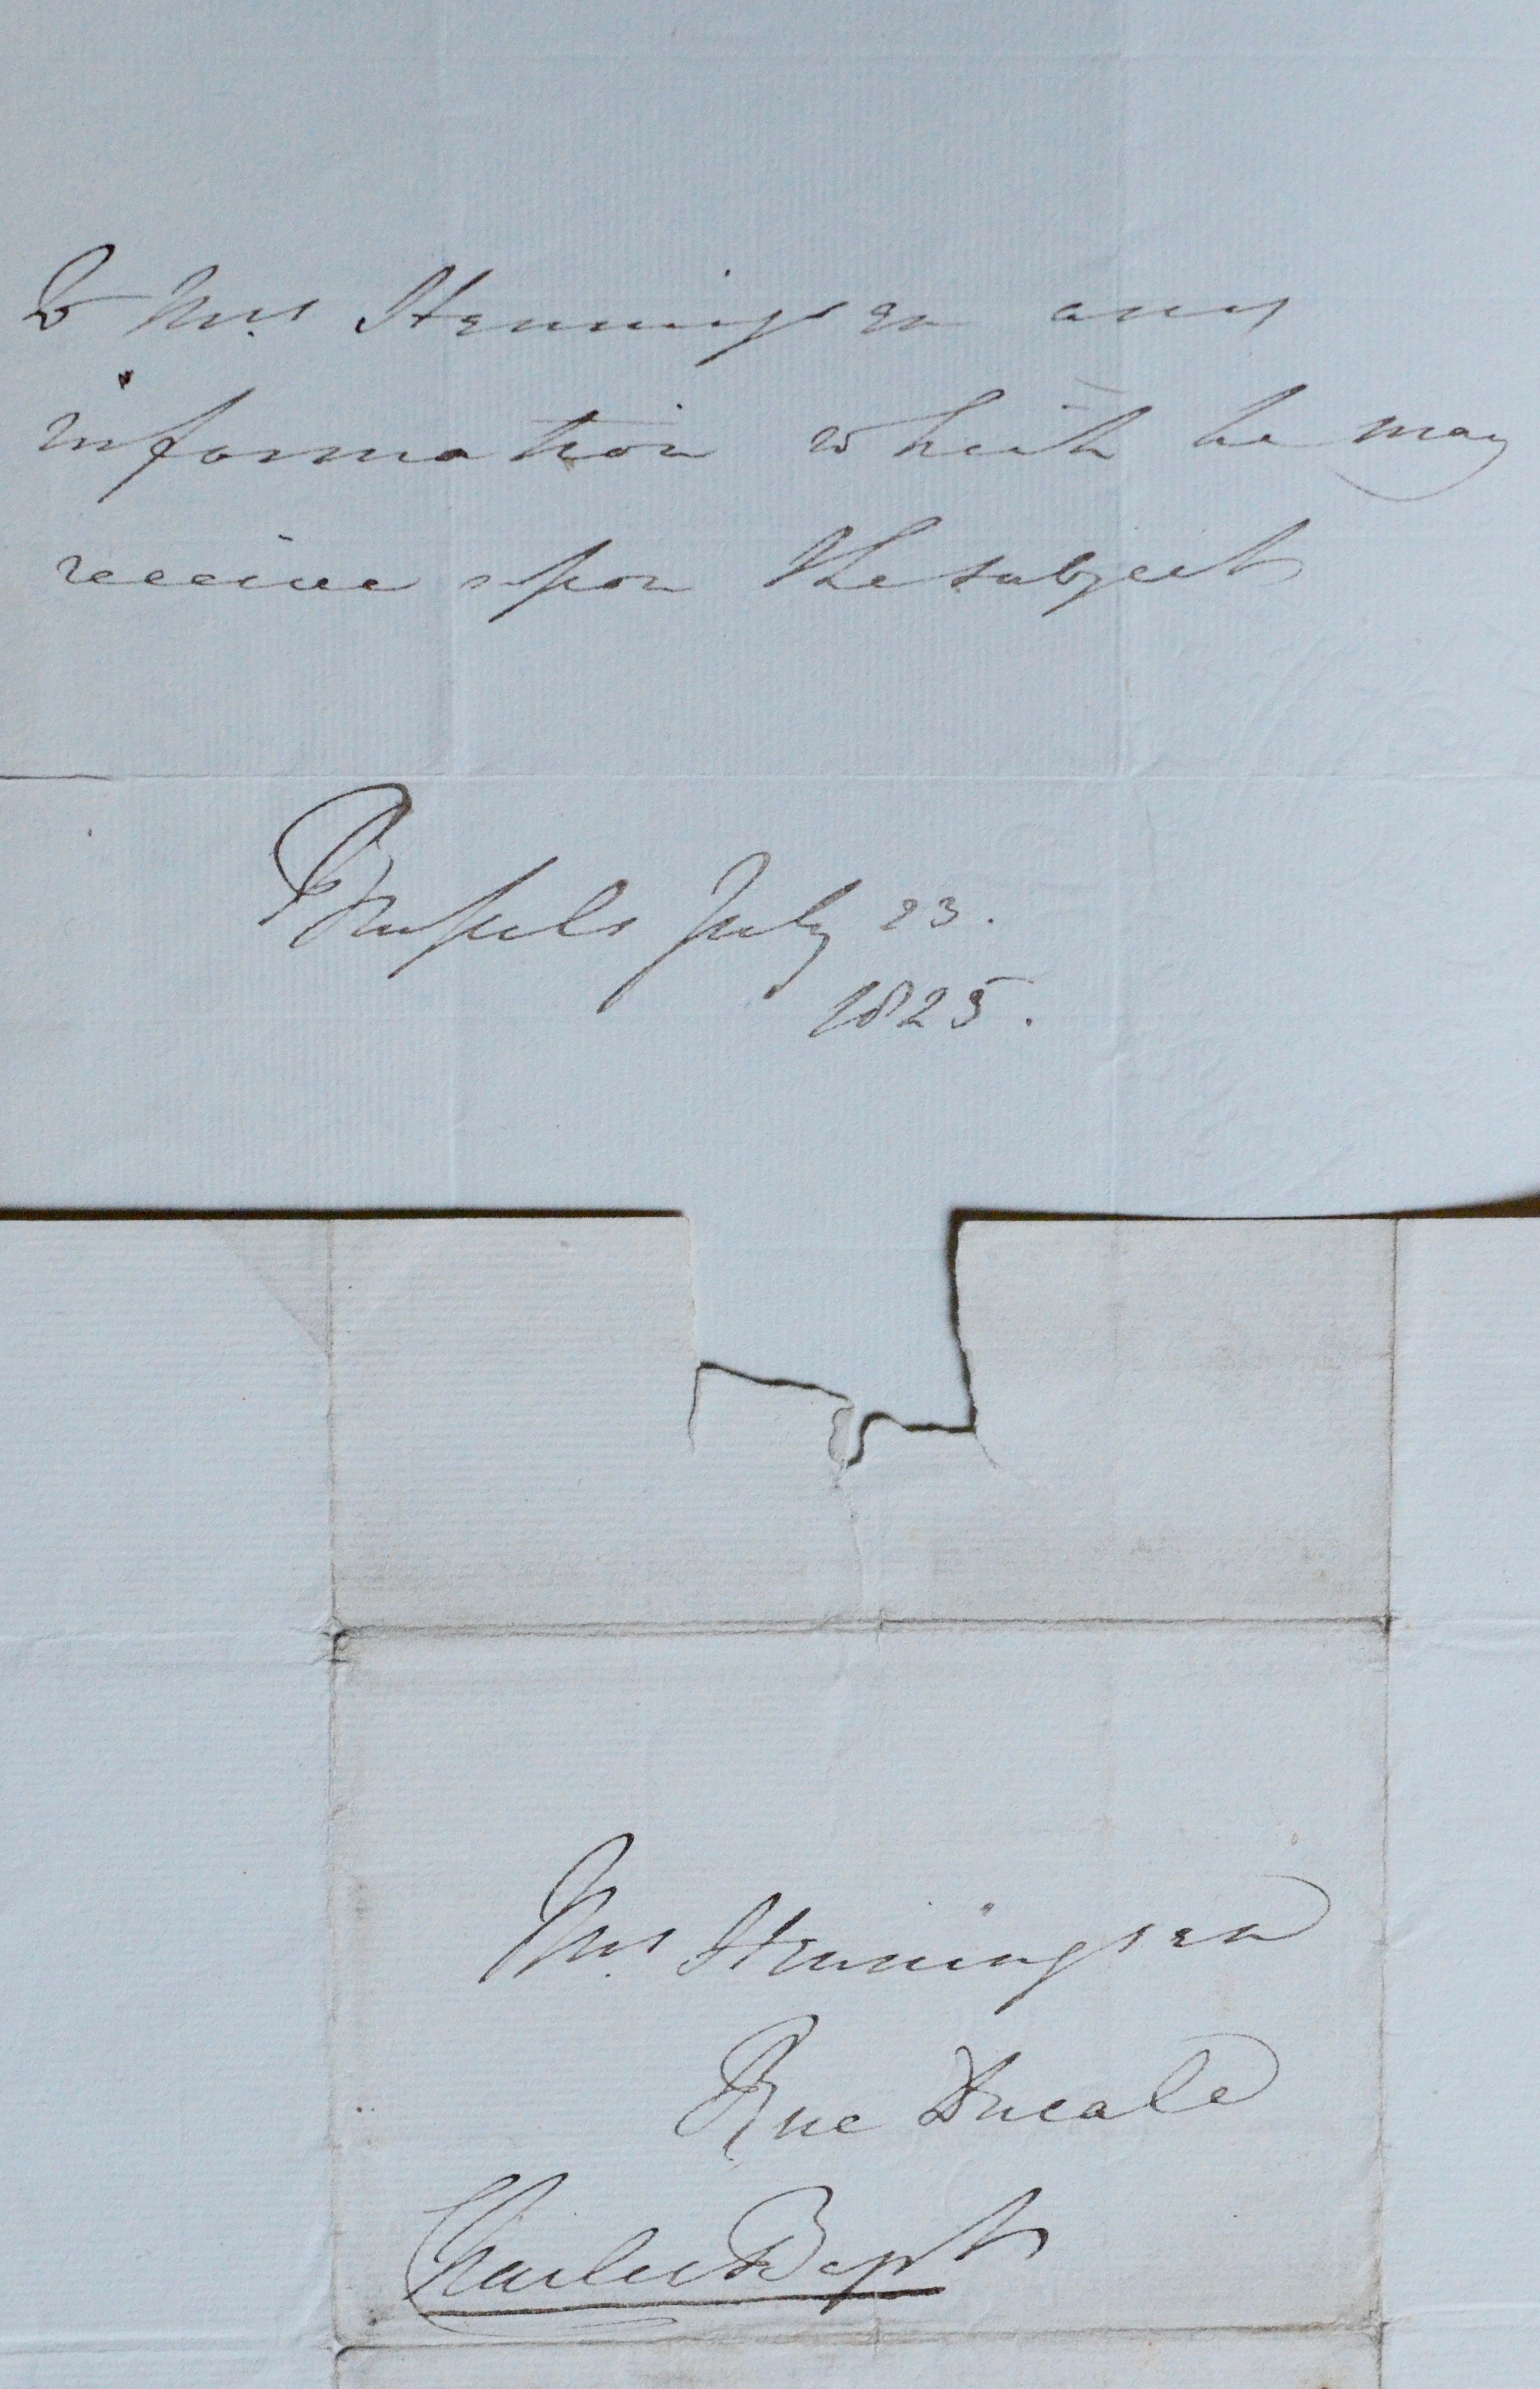 to Mrs. Henningsen any
information which he may
receive upon the subject
Brussels July 23.
1825.
Mrs. Henningsen
Rue Ducale
Charles Bagot